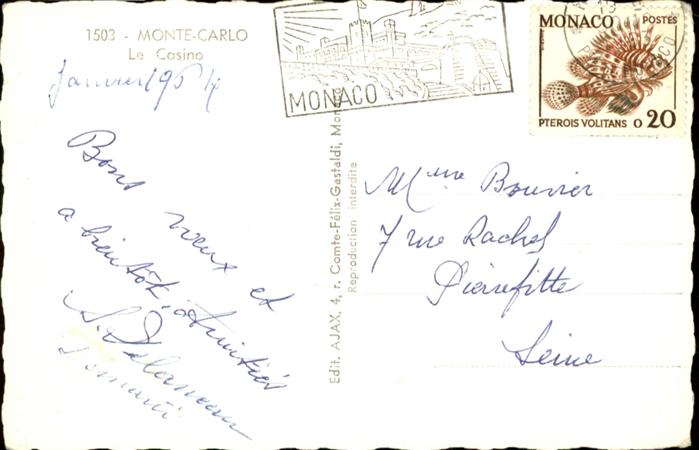 1503 - MONTE-CARLO
Le Casino
Janvier 1964
Bons
voeux et
a bientôt, amitiés
MONACO
MONACO
POSTES
PTEROIS VOLITANS 0 20
Edit. AJAX, 4, r. Comte-Félix-Gastaldi, Monaco
Reproduction interdite
Mme Bouvier
7 rue Rachel
Pierrefitte
Seine